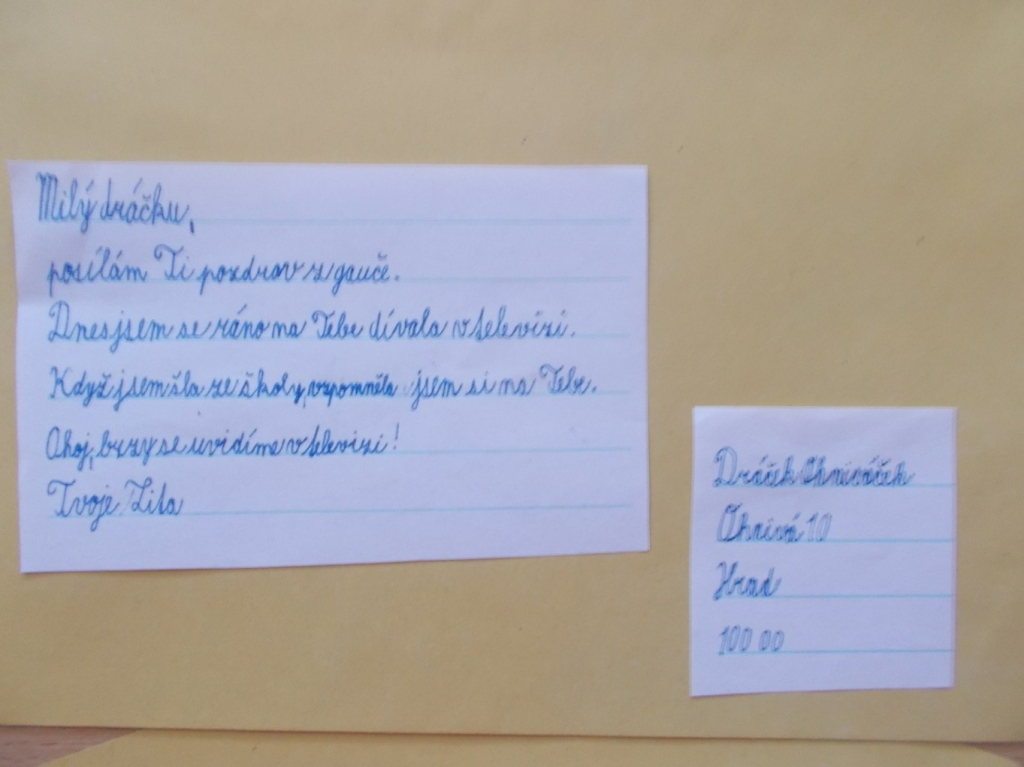 Milý dráčku,
posílám Ti pozdrav z gauče.
Dnes jsem se ráno na Tebe dívala v televizi.
Když jsem šla ze školy, vzpomněla jsem si na Tebe.
Ahoj, brzy se uvidíme v televizi!
Tvoje Zita
Dráček Ohniváček
Ohnivá 10
Hrad
100 00